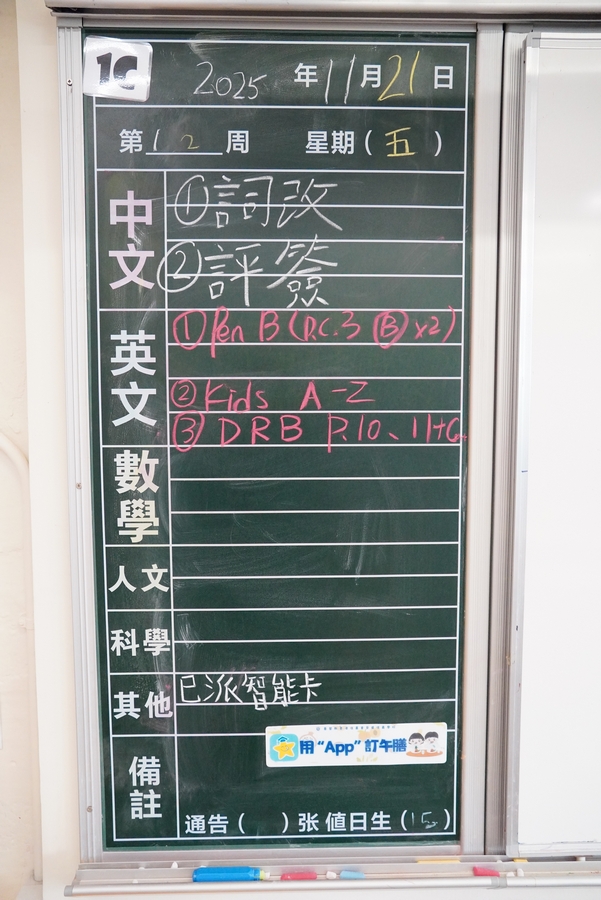 1C
2025 年 11 月 21 日
第 12 周 星期 ( 五 )
中文
① 詞改
② 評簽
英文
① Pen B (P.C.3 Ⓑ x2)
② Kids A-Z
③ DRB P.10、11+G
數學
人文
科學
其他
已派智能卡
用 “App” 訂午膳
備註
通告 ( ) 张 值日生 ( 15 )